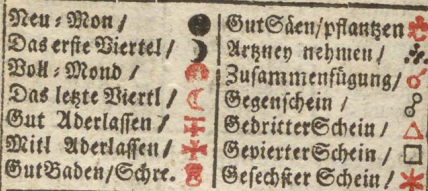 Neu-Mon /
Das erste Viertel /
Voll-Mond /
Das letzte Viertl /
Gut Aderlassen /
Mitl Aderlassen /
Gut Baden/Schre.
Gut Säen/pflantzen
Artzney nehmen /
Zusammenfügung/
Gegenschein /
Gedritter Schein /
Gevierter Schein /
Gesechster Schein /